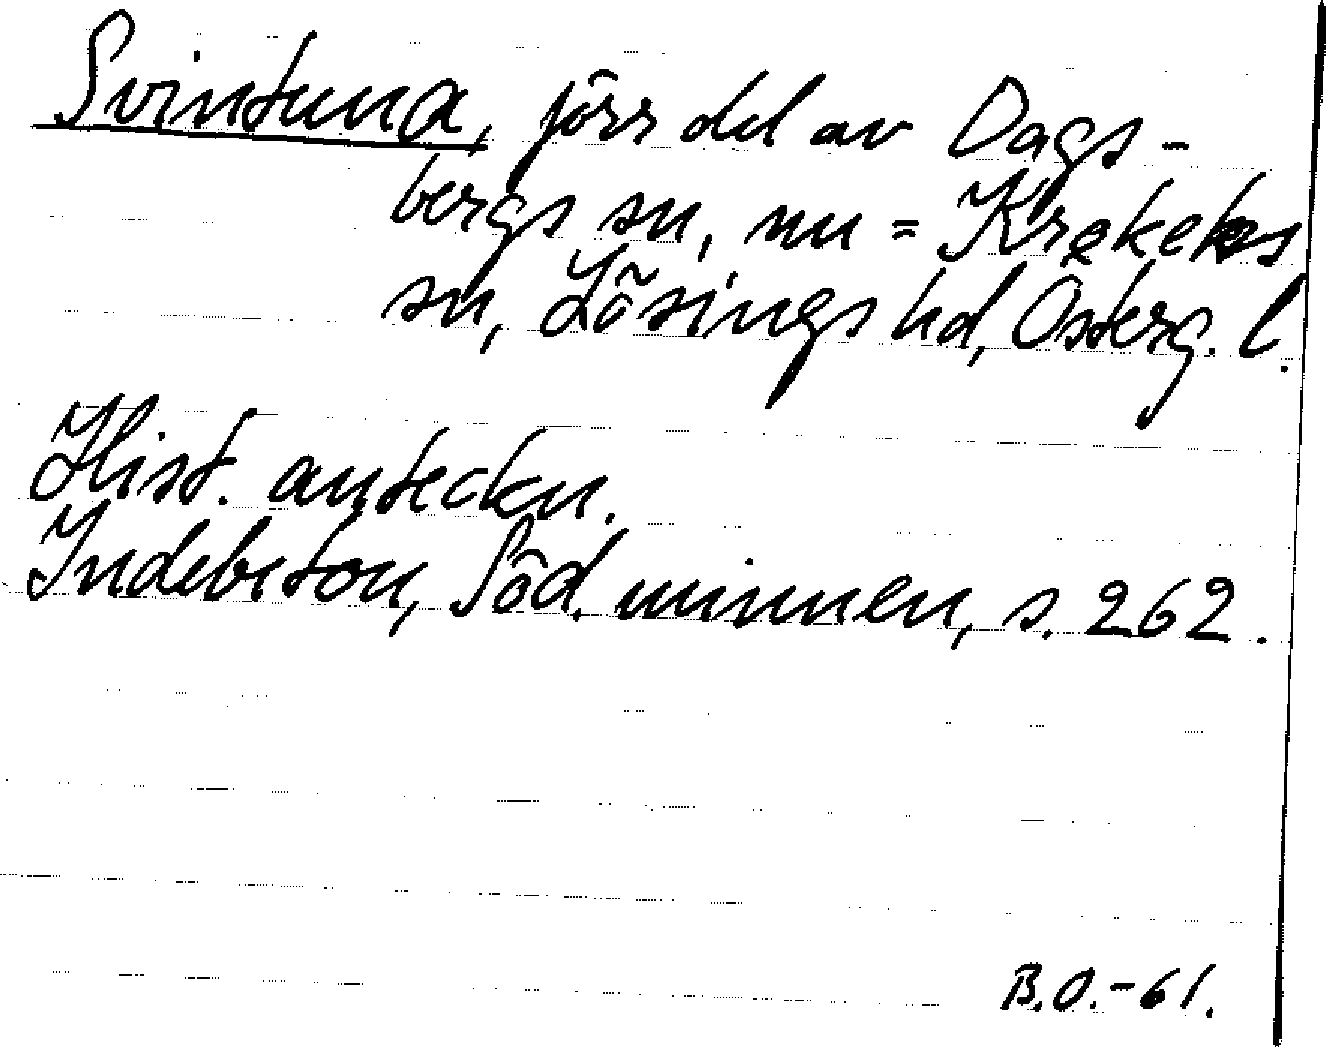 Svintuna, förr del av Dags-
bergs sn, nu = Krokeks
sn, Lösings hd, Österg. l.
Hist. anteckn.
Indebetou, Söd. minnen, s. 262.
B.O.-61.